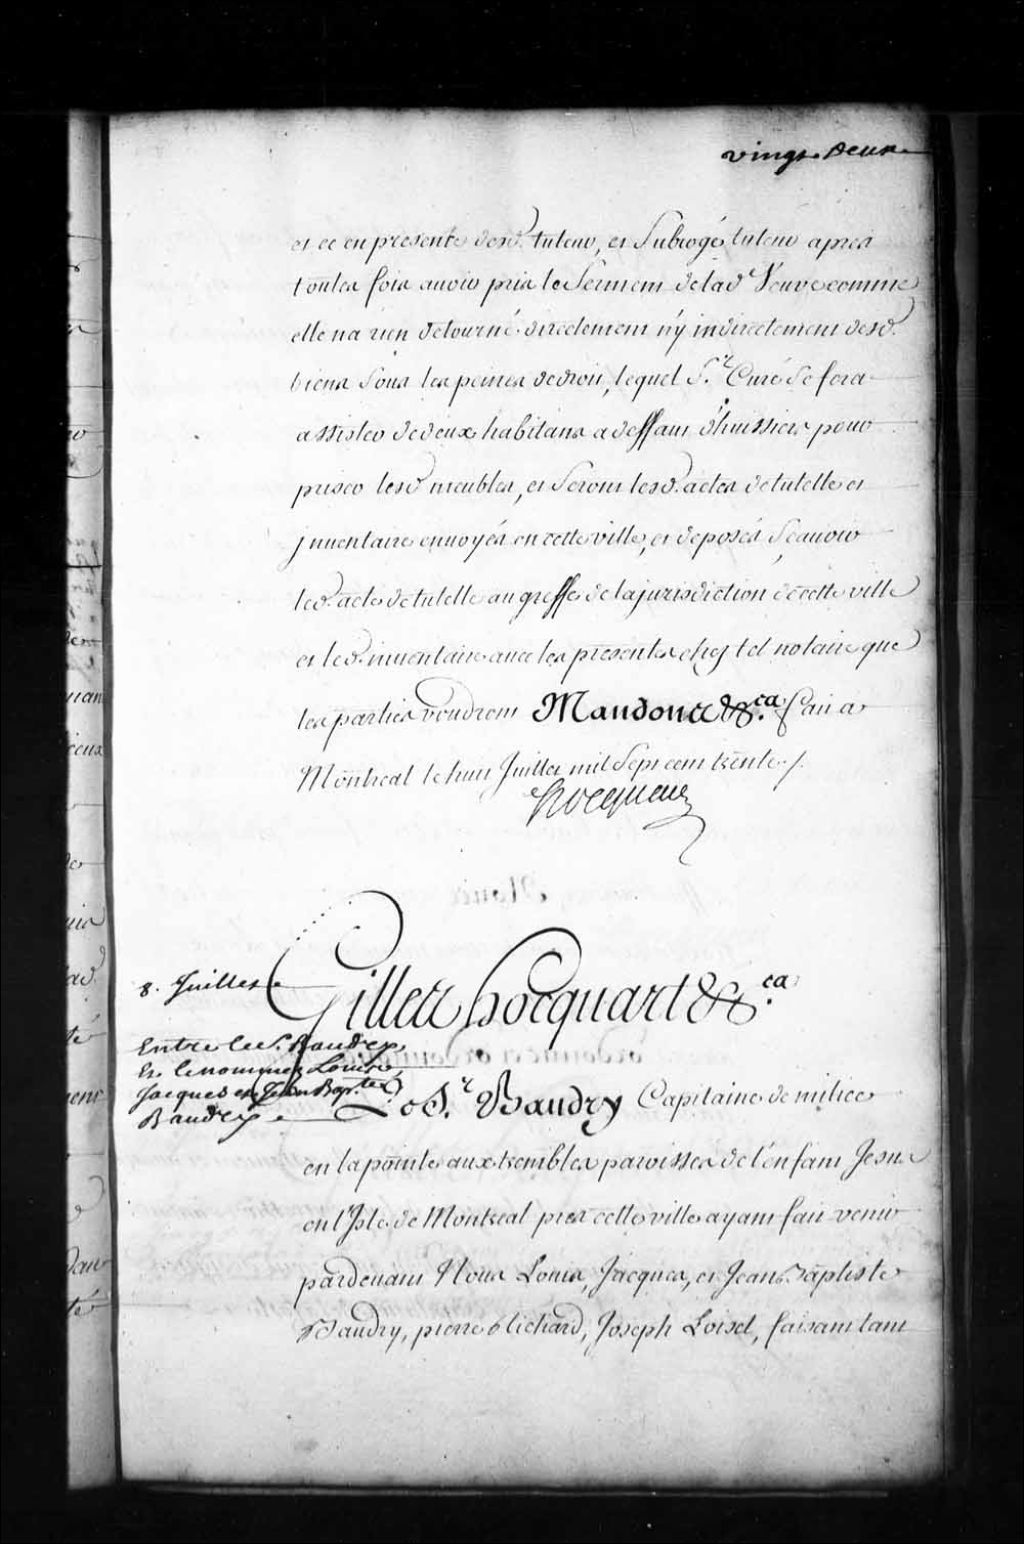 vingt Deux
et ce en presence desd. tuteur, et Subrogé tuteur apres
toutes fois avoir pris le Serment de lad Veuve comme
elle na rien detourné directement n'y indirectement desd.
biens Sous les peines de droit, lequel S.r Curé Se fera
assister de deux habitans a deffaut d'huissiers pour
priser lesd meubles, et Seront lesd. actes de tutelle et
jnventaire envoyés en cette ville, et deposés Sçavoir
led. acte de tutelle au greffe de la jurisdiction de cette ville
et led. inventaire avec les presentes chez tel notaire que
les parties voudront Mandons &.ca fait a
Montreal le huit Juillet mil Sept cent trente ./.
Hocquart
8. Juillet
Gilles hocquart &.ca
Entre le S. Baudry
Et le nommez Louis
Jacques et Jean Bap.te
Baudry
Le S.r Baudry Capitaine de milice
en la pointe aux trembles paroisse de l'enfant Jesus
en l'Isle de Montreal pres cette ville ayant fait venir
pardevant Nous Louis, Jacques, et Jean Baptiste
Baudry, pierre Richard, Joseph Loisel, faisant tant